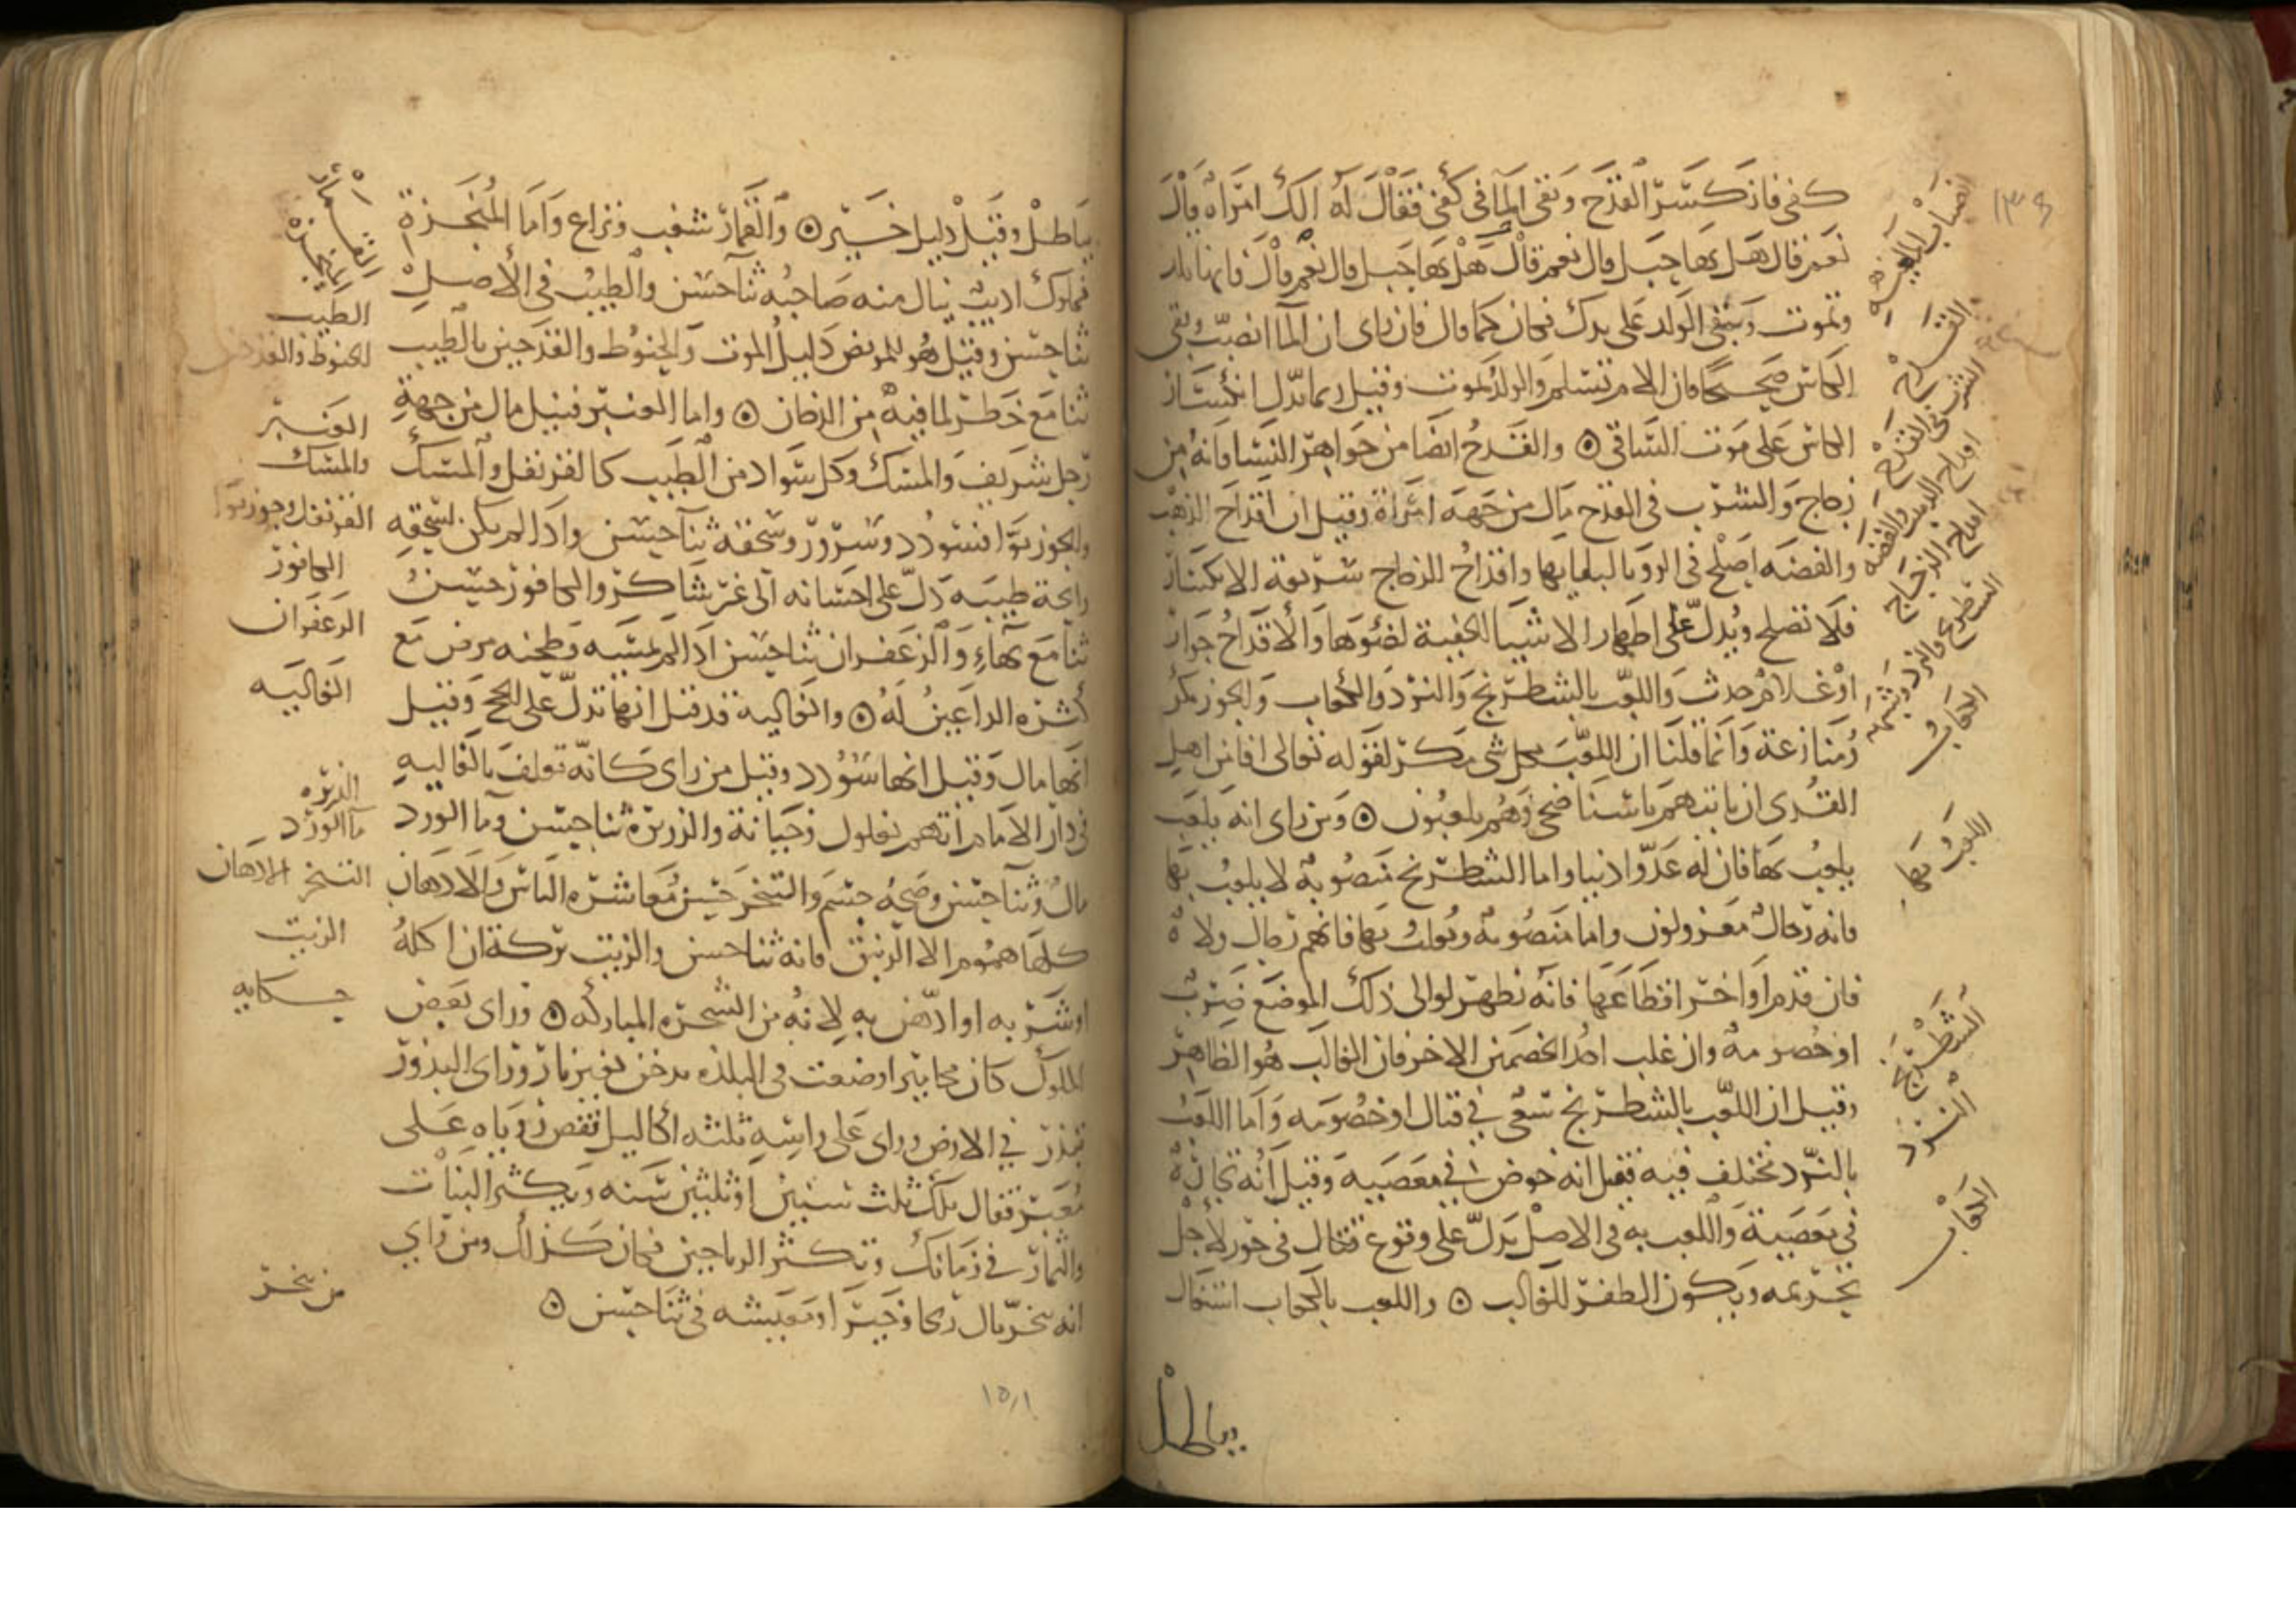 كفي فانكسر القدح وبقي الما في كفي فقال له الك امراه قال
نعم قال هل بها حبل قال نعم قال هل بها حبل قال نعم قال فانها تلد
وتموت ويبقى الولد على يدك فكان كما قال فان راى ان الما انصب وبقي
الكاس صحيحا فان الام تسلم والولد يموت وقيل ربما دل انكسار
الكاس على موت الساقي ه والقدح ايضا من جواهر النسا فانه من
زجاج والشرب في القدح مال من جهة امراة وقيل ان اقداح الذهب
والفضه اصلح في الرويا لبقايها واقداح الزجاج سريعة الانكسار
فلا تصلح ويدل على اظهار الاشيا الخفية لضوها والاقداح جوار
او غلام حدث واللعب بالشطرنج والنرد والكعاب والجوز مكر
ومنازعة وانما قلنا ان اللعب بكل شي مكر لقوله تعالى افامن اهل
القرى ان ياتيهم باسنا ضحى وهم يلعبون ه ومن راى انه يلعب
يلعب بها فان له عدوا دنيا واما الشطرنج منصوبة لا يلعب بها
فانه رجال معزولون واما منصوبة ويلعب بها فانهم رجال ولاة
فان قدم او اخر اقطاعها فانه يظهر لوالي ذلك الموضع ضرب
او خصومة وان غلب احد الخصمين الاخر فان الغالب هو الظاهر
وقيل ان اللعب بالشطرنج سعي في قتال او خصومه واما اللعب
بالنرد تختلف فيه فقيل انه خوض في معصيه وقيل انه تجارة
في معصية واللعب به في الاصل يدل على وقوع قتال في جور لاجل
تحريمه ويكون الظفر للغالب ه واللعب بالكعاب اشتغال
بباطل
القدح
الشرب في القدح
اقداح الذهب والفضه
اقداح الزجاج
الشطرنج والنرد وشبهه
الكعاب
اللعب بها
الشطرنج
النرد
الكعاب
بباطل وقيل دليل خير ه والقمار شغب ونزاع واما المبخرة
فمملوك اديب ينال منه صاحبه ثنا حسن والطيب في الاصل
ثنا حسن وقيل هو للمريض دليل الموت والحنوط والتدخين بالطيب
ثنا مع خطر لما فيه من الدخان ه واما العنبر فنيل مال من جهة
رجل شريف والمسك وكل سواد من الطيب كالقرنفل والمسك
والجوزبوا فسودد وسرور وسحقه ثنا حسن واذا لم يكن لسحقه
رايحة طيبه دل على احسانه الى غير شاكر والكافور حسن
ثنا مع بهاء والزعفران ثنا حسن اذا لم يمسه وطحنه مرض مع
كثرة الداعين له ه والغاليه قد قيل انها تدل على الحج وقيل
انها مال وقيل انها سودد وقيل من راى كانه تغلف بالغاليه
في دار الامام اتهم بغلول وخيانة والذريرة ثنا حسن وما الورد
مال وثنا حسن وصحة جسم والتبخر حسن معاشرة الناس والادهان
كلها هموم الا الزنبق فانه ثنا حسن والزيت بركة ان اكله
او شربه او ادهن به لانه من الشجرة المباركه ه وراى بعض
الملوك كان مجامير اوضعت في البلده تدخن بغير نار وراى البذور
تبذر في الارض وراى على راسه ثلثه اكاليل فقص روياه على
معبر فقال تملك ثلث سنين او ثلثين سنه ويكثر النبات
والثمار في زمانك وتكثر الرياحين فكان كذلك ومن راى
انه تبخر نال ربحا وخيرا ومعيشه في ثنا حسن ه
المبخرة
الطيب
العنبر
والمسك
القرنفل وجوزبوا
الكافور
الزعفران
الغاليه
الذريره
ما الورد
التبخر الادهان
الزيت
حكايه
من تبخر